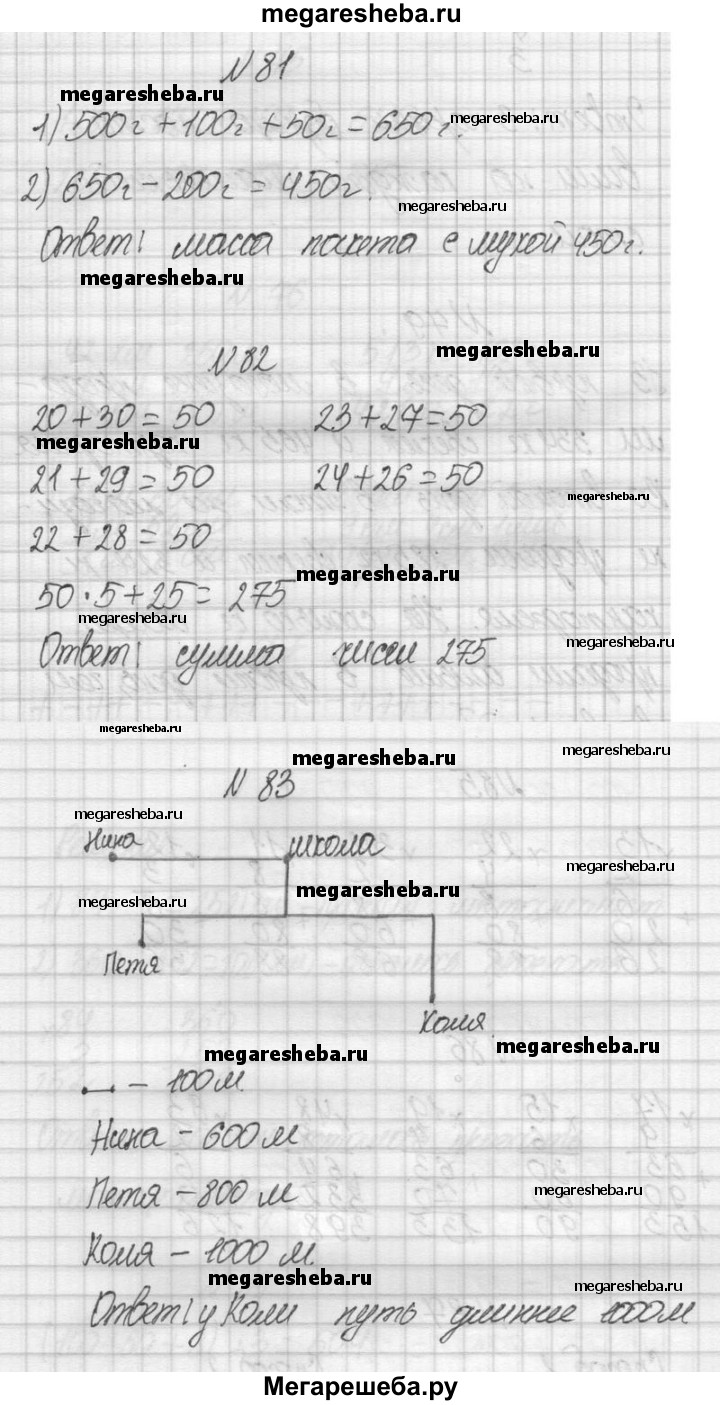 megaresheba.ru
№ 81
megaresheba.ru
1) 500г + 100г + 50г = 650г.
megaresheba.ru
2) 650г - 200г = 450г.
megaresheba.ru
Ответ: масса пакета с мукой 450г.
megaresheba.ru
№ 82
megaresheba.ru
20 + 30 = 50 23 + 27 = 50
megaresheba.ru
21 + 29 = 50 24 + 26 = 50
megaresheba.ru
22 + 28 = 50
megaresheba.ru
50 · 5 + 25 = 275
megaresheba.ru
Ответ: сумма чисел 275
megaresheba.ru
megaresheba.ru
megaresheba.ru
megaresheba.ru
№ 83
megaresheba.ru
Нина школа
megaresheba.ru
megaresheba.ru
megaresheba.ru
Петя
Коля
megaresheba.ru
megaresheba.ru
- 100 м.
Нина - 600 м
Петя - 800 м
megaresheba.ru
Коля - 1000 м.
megaresheba.ru
megaresheba.ru
Ответ: у Коли путь длиннее 1000 м
Мегарешеба.ру